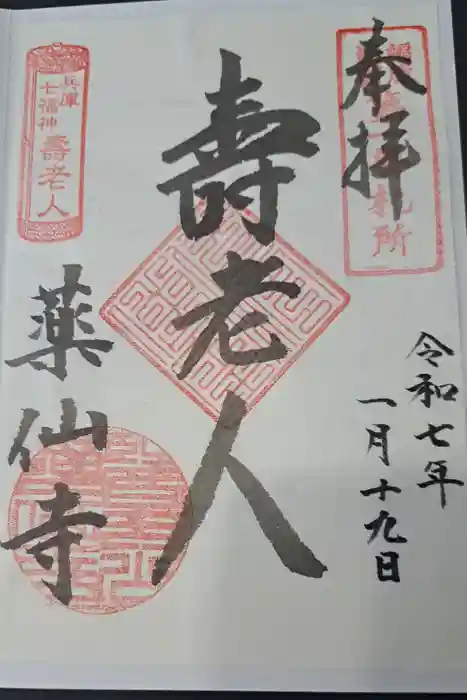 奉拝
札所
令和七年
一月十九日
壽老人
兵庫
七福神
壽老人
薬仙寺